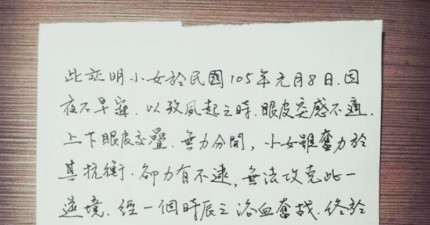 此証明小女於民國105年元月8日.因
夜不早寐.以致夙起之時.眼皮交感不適.
上下眼皮交疊.無力分開,小女雖奮力於
其抗衡.卻力有不逮,無法攻克此一
逆境.經一個時辰之浴血奮戰.終於